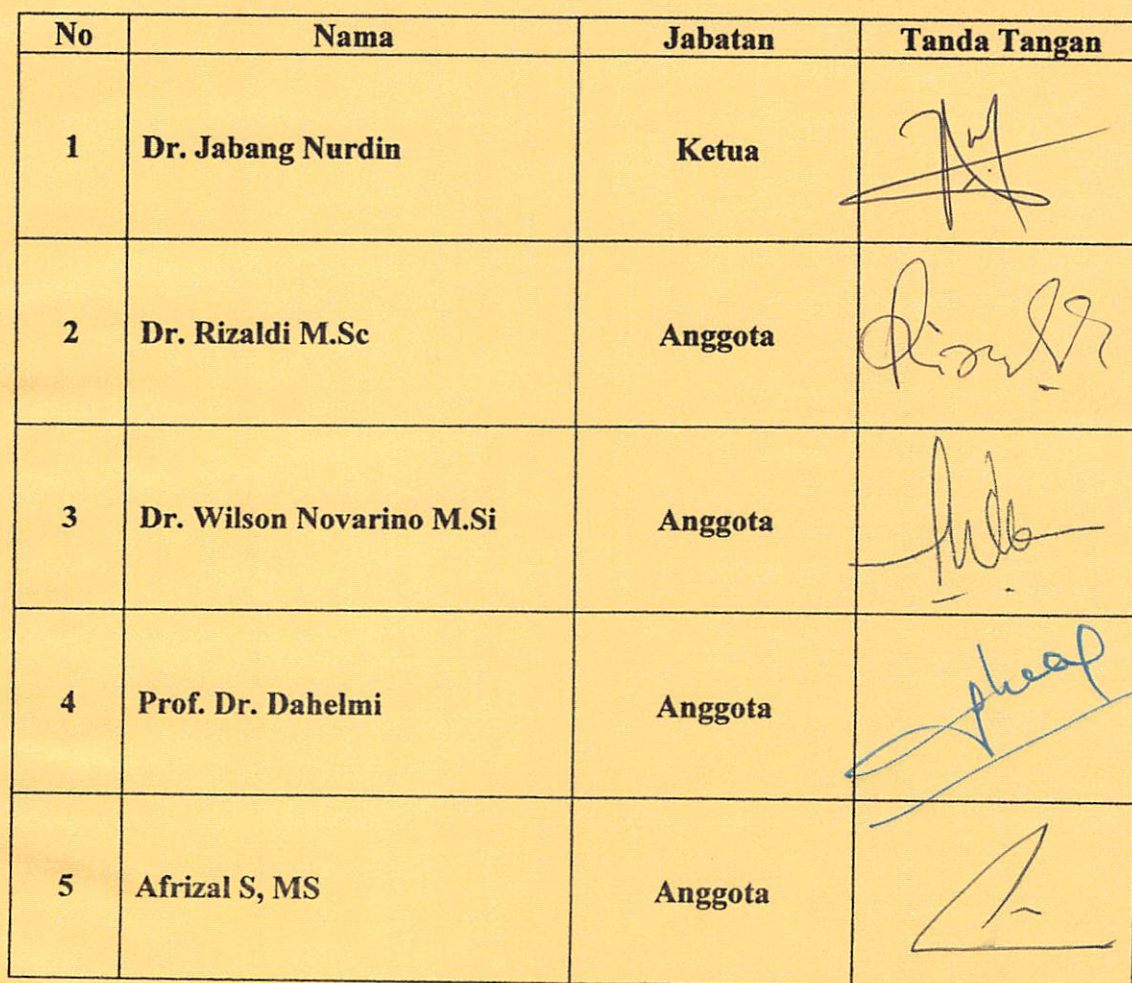 No Nama Jabatan Tanda Tangan
1 Dr. Jabang Nurdin Ketua
2 Dr. Rizaldi M.Sc Anggota
3 Dr. Wilson Novarino M.Si Anggota
4 Prof. Dr. Dahelmi Anggota
5 Afrizal S, MS Anggota